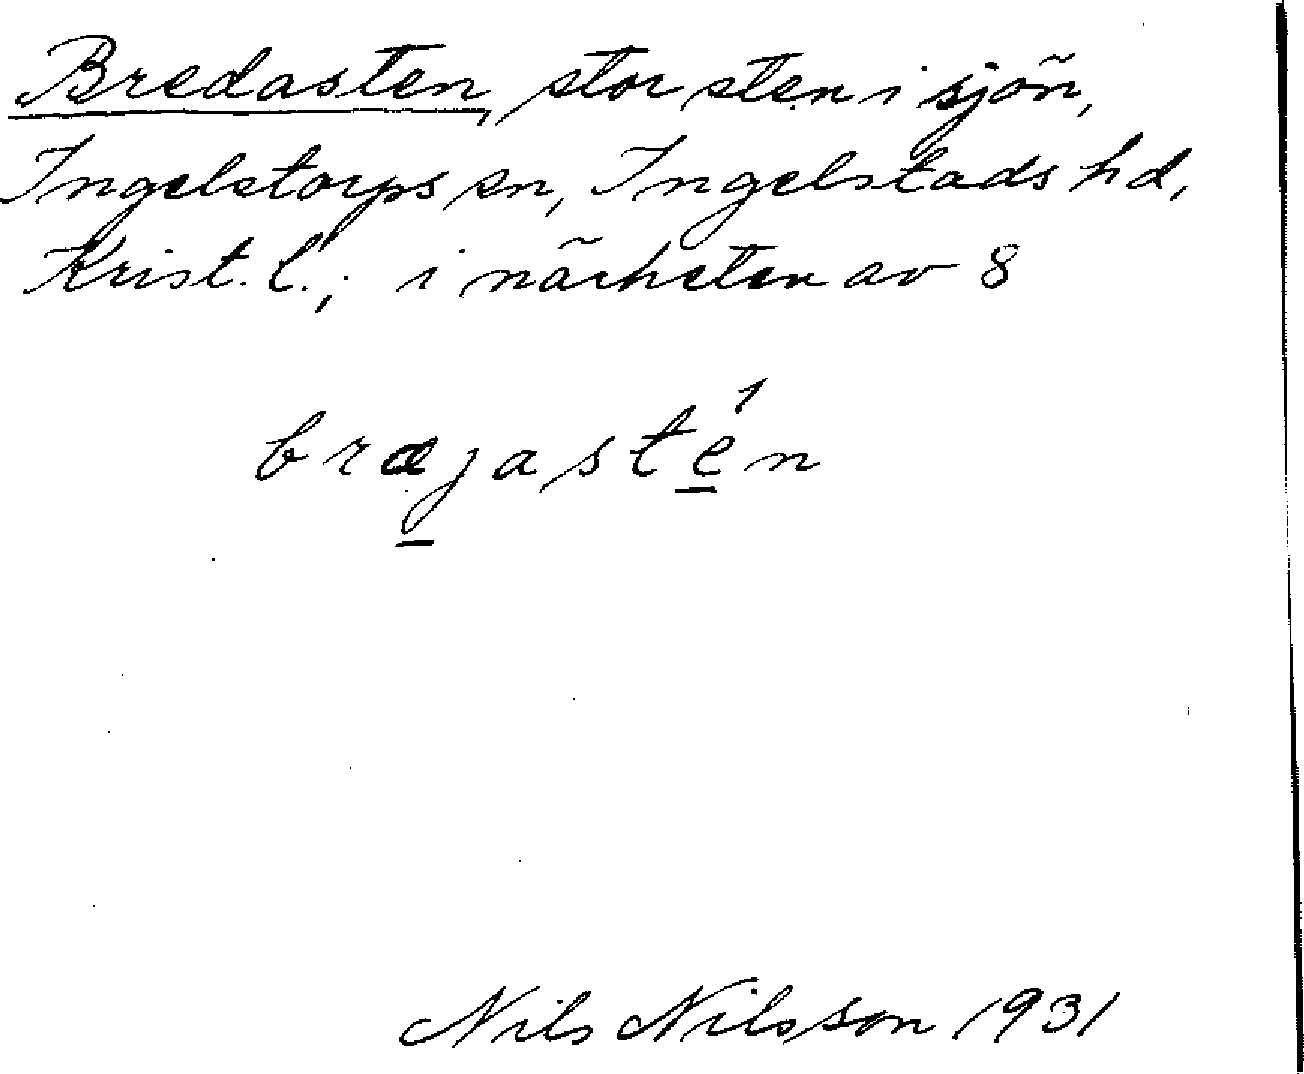 Bredasten, stor sten i sjön,
Ingelstorps sn, Ingelstads hd,
Krist. l.; i närheten av 8
bræjastén
Nils Nilsson 1931